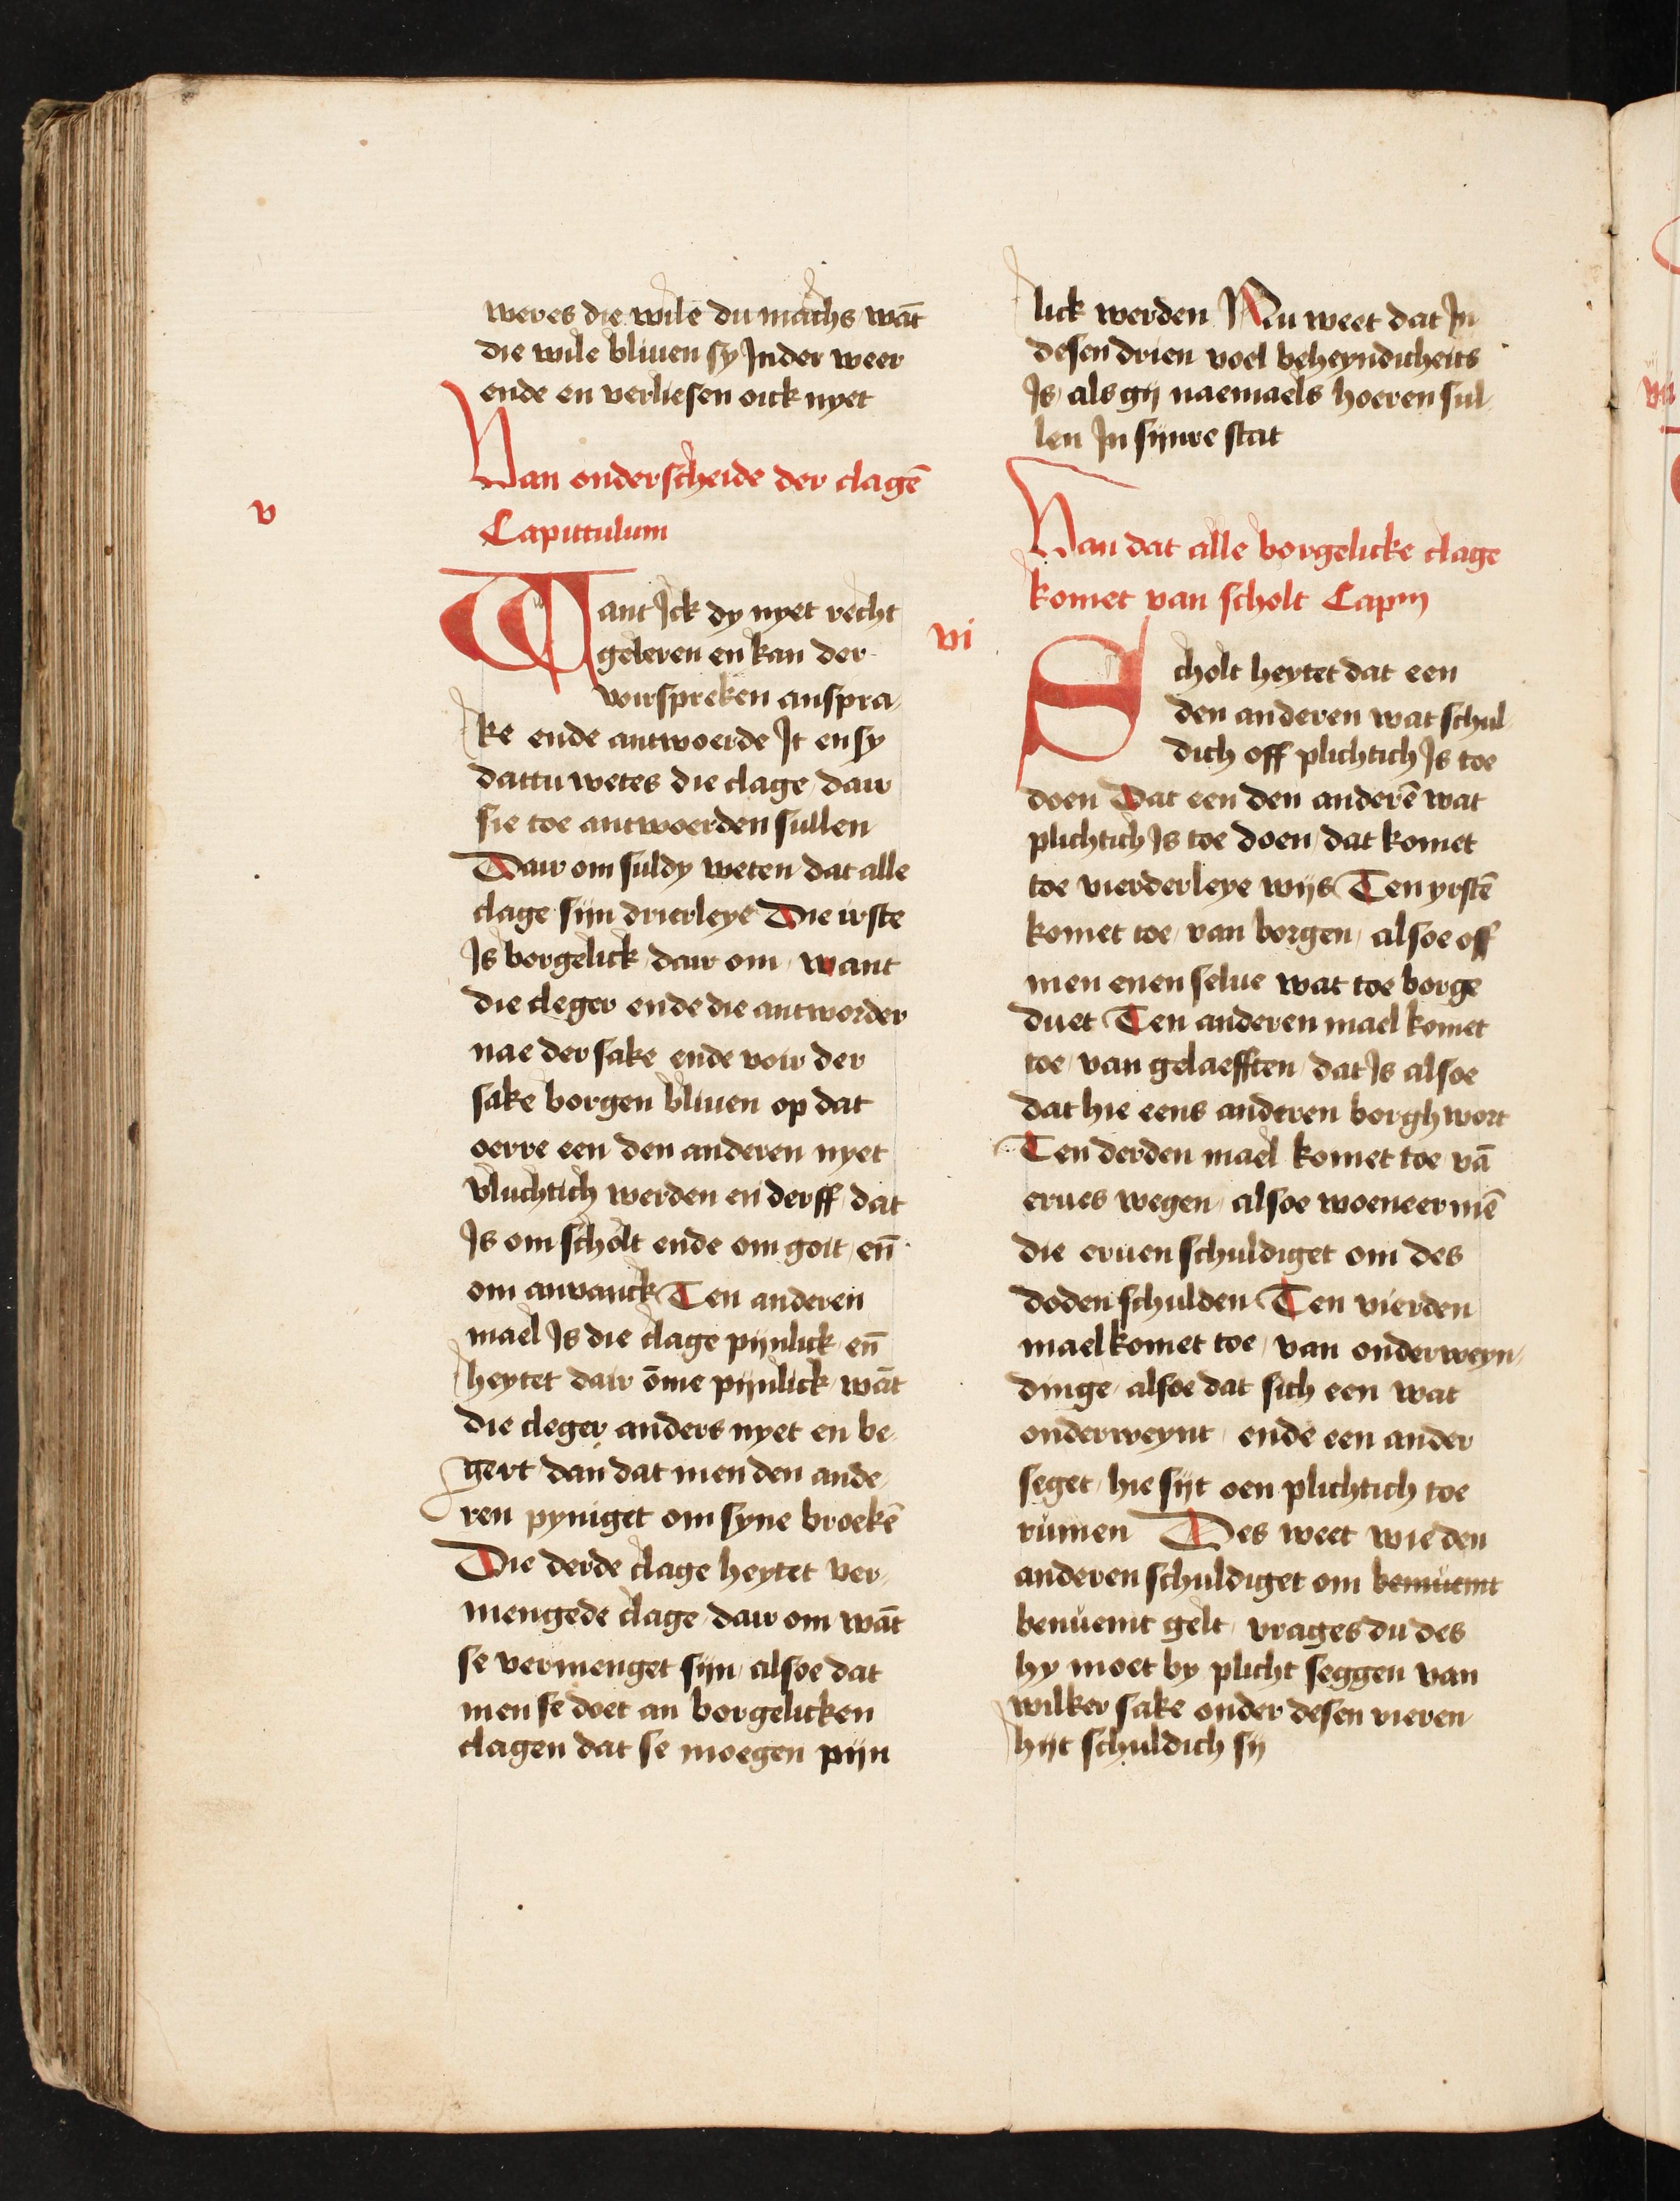 weres die wile du machs wāt
die wile bliuen sy Inder weer
ende en verliesen oick nyet
Van onderscheide der clagē
v
Capittulum
Want Ick dy nyet recht
geleren en kan der
voirspreken anspra
ke ende antwoerde It en sy
dattu wetes die clage dair
sie toe antwoerden sullen
Dair om suldy weten dat alle
clage sijn drierleye Die irste
Is borgelick dair om want
die cleger ende die antworder
nae der sake ende voir der
sake borgen bliuen op dat
oerre een den anderen nyet
vluchtich werden en derff dat
Is om scholt ende om goit en̄
om anvanck Ten anderen
mael Is die clage pijnlick en̄
heytet dair ōme pijnlick wāt
die cleger anders nyet en be
gert dan dat men den ande
ren pyniget om syne broekē
Die derde clage heytet ver
mengede clage dair om wāt
se vermenget sijn alsoe dat
men se doet an borgelicken
clagen dat se moegen pijn
lick werden Nu weet dat In
desen drien voel beheyndicheits
Is als gij naemaels hoeren sul
len In sijnre stat
Van dat alle borgelicke clage
komet van scholt Capm
vi
Scholt heytet dat een
den anderen wat schul
dich off plichtich Is toe
doen Dat een den anderē wat
plichtich Is toe doen dat komet
toe vierderleye wijs Ten yrstē
komet toe van borgen alsoe off
men enen selue wat toe borge
duet Ten anderen mael komet
toe van gelaefften dat Is alsoe
dat hie eens anderen borgh wort
Ten derden mael komet toe vā
erues wegen alsoe woeneer mē
die eruen schuldiget om des
doden schulden Ten vierden
mael komet toe van onderweyn
dinge alsoe dat sich een wat
onderweynt ende een ander
seget hie sijt oen plichtich toe
rumen Des weet wie den
anderen schuldiget om bemuemt
benuemt gelt vrages du des
hy moet by plicht seggen van
wilker sake onder desen vieren
hijt schuldich sij